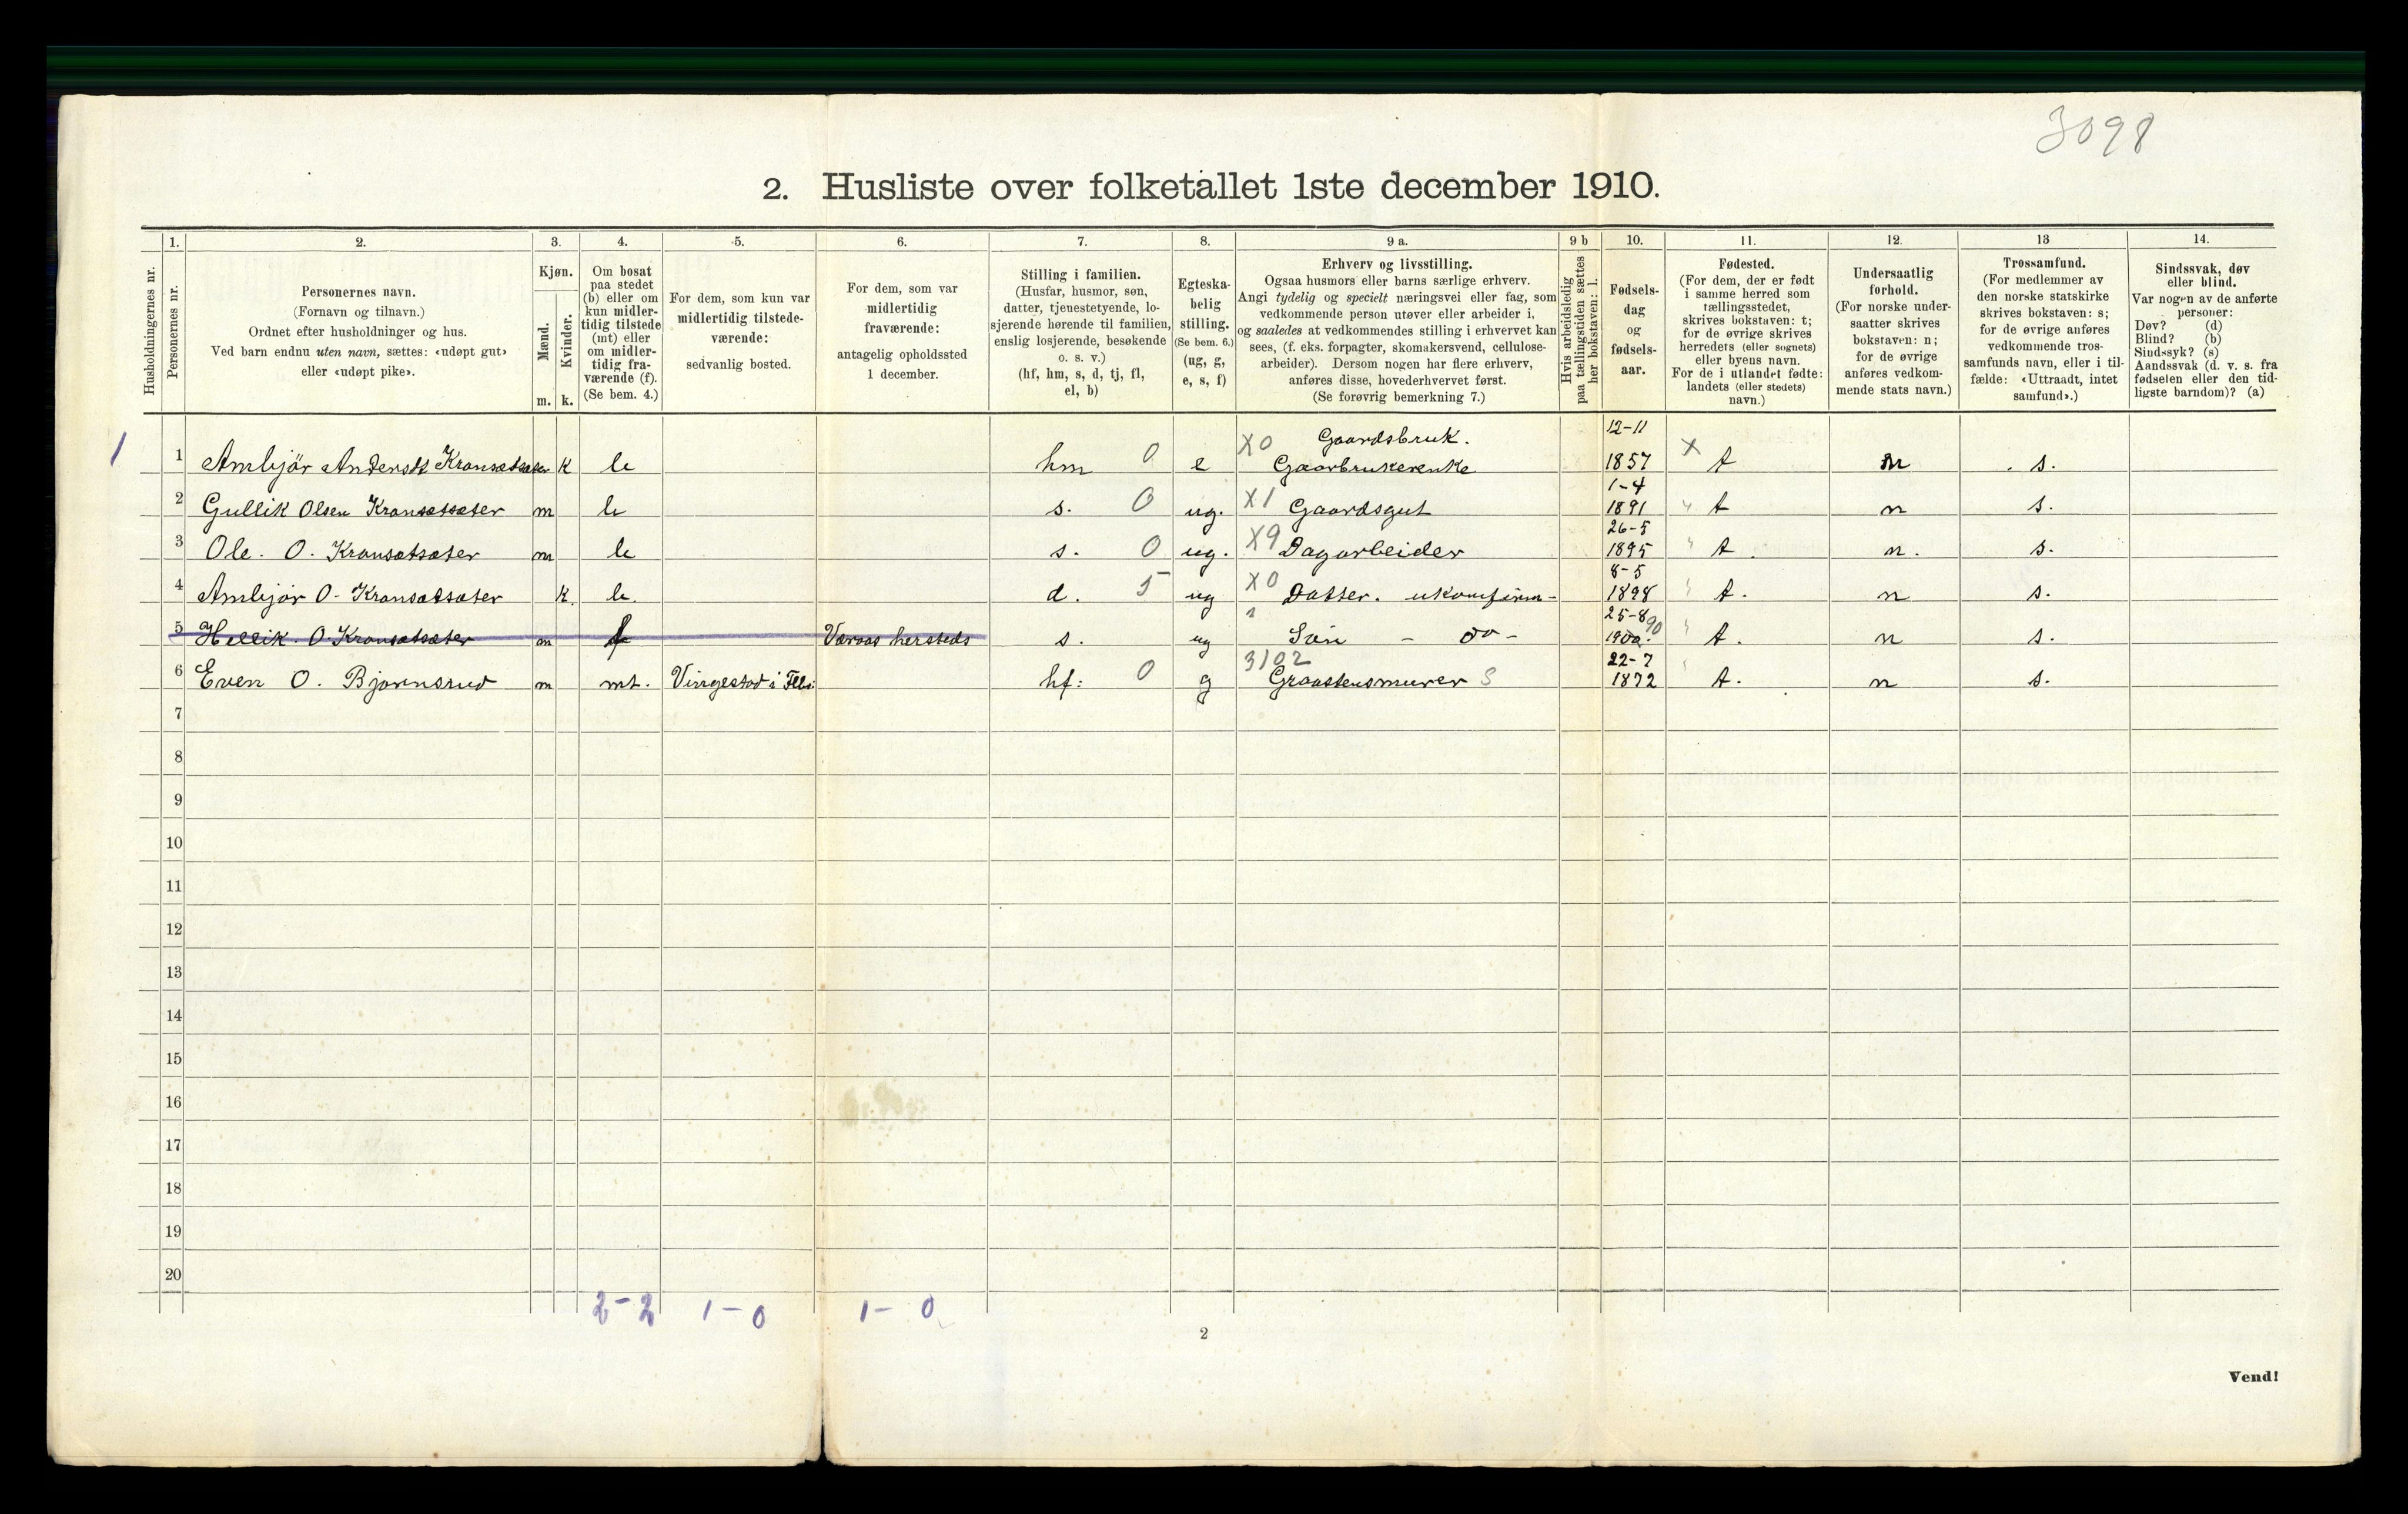 3098
2. Husliste over folketallet 1ste december 1910.
1. 2. 3. 4. 5. 6. 7. 8. 9 a. 9 b 10. 11. 12. 13 14.
Husholdningernes nr.
Personernes nr.
Personernes navn.
(Fornavn og tilnavn.)
Ordnet efter husholdninger og hus.
Ved barn endnu uten navn, sættes: «udøpt gut»
eller «udøpt pike».
Kjøn.
Mænd.
Kvinder.
m. k.
Om bosat
paa stedet
(b) eller om
kun midler-
tidig tilstede
(mt) eller
om midler-
tidig fra-
værende (f).
(Se bem. 4.)
For dem, som kun var
midlertidig tilstede-
værende:
sedvanlig bosted.
For dem, som var
midlertidig
fraværende:
antagelig opholdssted
1 december.
Stilling i familien.
(Husfar, husmor, søn,
datter, tjenestetyende, lo-
sjerende hørende til familien,
enslig losjerende, besøkende
o. s. v.)
(hf, hm, s, d, tj, fl,
el, b)
Egteska-
belig
stilling.
(Se bem. 6.)
(ug, g,
e, s, f)
Erhverv og livsstilling.
Ogsaa husmors eller barns særlige erhverv.
Angi tydelig og specielt næringsvei eller fag, som
vedkommende person utøver eller arbeider i,
og saaledes at vedkommendes stilling i erhvervet kan
sees, (f. eks. forpagter, skomakersvend, cellulose-
arbeider). Dersom nogen har flere erhverv,
anføres disse, hovederhvervet først.
(Se forøvrig bemerkning 7.)
Hvis arbeidsledig
paa tællingstiden sættes
her bokstaven: l.
Fødsels-
dag
og
fødsels-
aar.
Fødested.
(For dem, der er født
i samme herred som
tællingsstedet,
skrives bokstaven: t;
for de øvrige skrives
herredets (eller sognets)
eller byens navn.
For de i utlandet fødte:
landets (eller stedets)
navn.)
Undersaatlig
forhold.
(For norske under-
saatter skrives
bokstaven: n;
for de øvrige
anføres vedkom-
mende stats navn.)
Trossamfund.
(For medlemmer av
den norske statskirke
skrives bokstaven: s;
for de øvrige anføres
vedkommende tros-
samfunds navn, eller i til-
fælde: «Uttraadt, intet
samfund».)
Sindssvak, døv
eller blind.
Var nogen av de anførte
personer:
Døv? (d)
Blind? (b)
Sindssyk? (s)
Aandssvak (d. v. s. fra
fødselen eller den tid-
ligste barndom)? (a)
X0 Gaardsbruk. 12-11
1 1 Ambjør Andersdt Kransetsæter k b hm 0 e Gaarbrukerenke 1857 X t n s.
1-4
2 Gullik Olsen Kransetsæter m b s. 0 ug. X1 Gaardsgut 1891 " t n s.
26-5
3 Ole. O. Kransetsæter m b s. 0 ug. X9 Dagarbeider 1895 " t n. s.
8-5
4 Ambjør O- Kransetsæter k. b. d. 5 ug X0 Datter. ukonfirm- 1898 " t. n s.
25-8 90
5 Hellik. O. Kransetsæter m f s. ug Søn - do - 1900. " t. n s.
3102 22-7
6 Even O. Bjørnsrud m mt. hf: 0 g Graastensmurer S 1872 t. n s.
7
8
9
10
11
12
13
14
15
16
17
18
19
20
2-2 1-0 1-0
2
Vend!